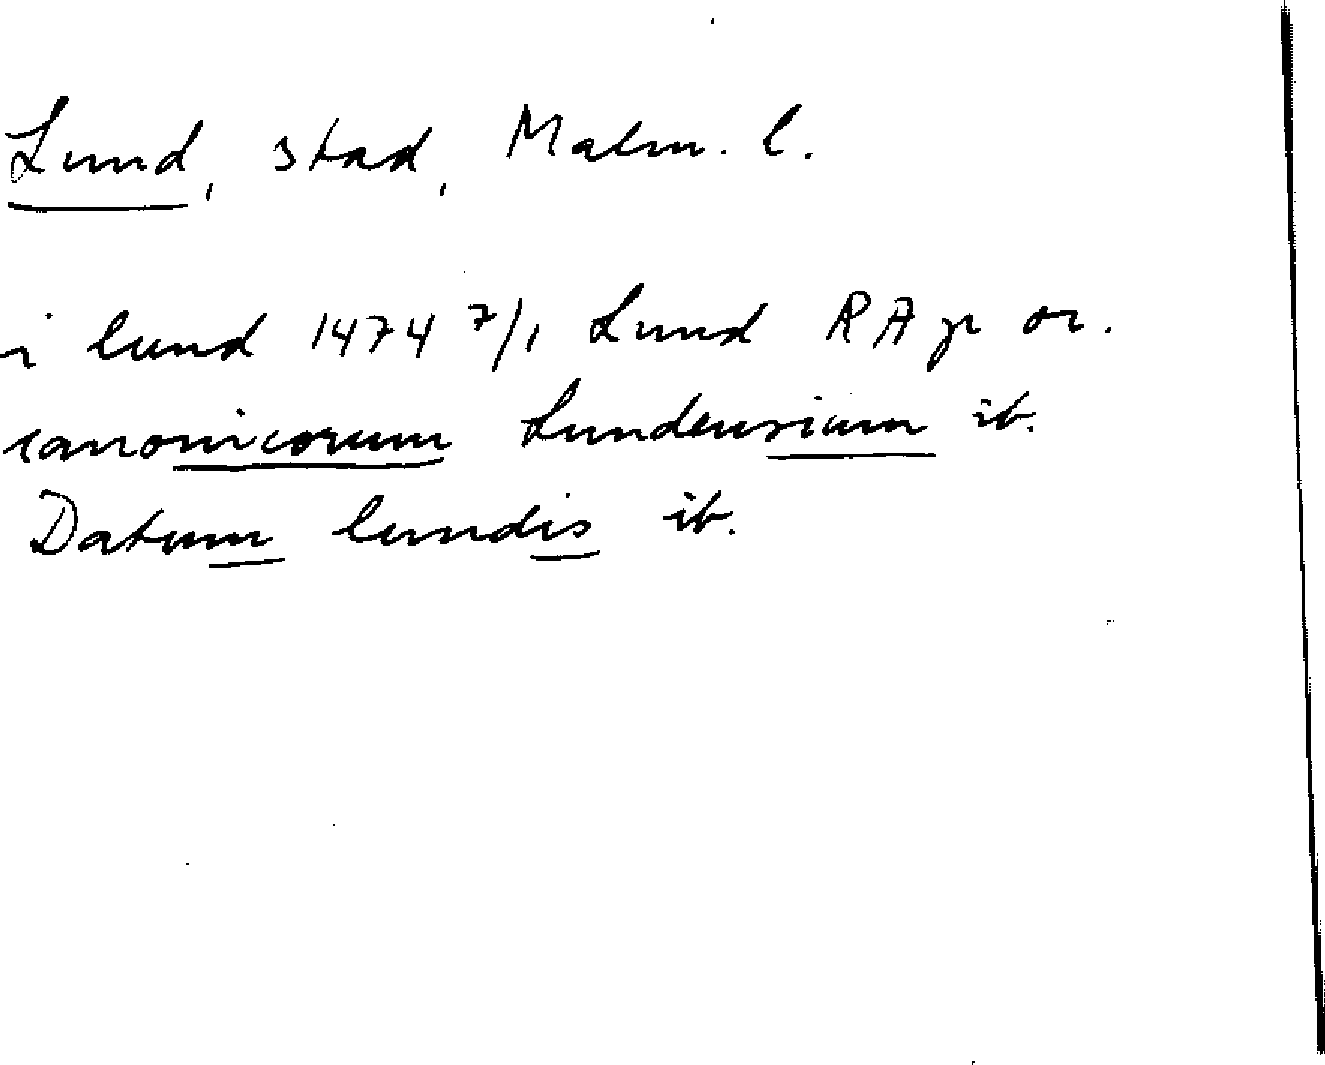 Lund, stad, Malm. l.
i lund 1474 7/1 Lund RA p or.
canonicorum Lundensium ib.
Datum lundis ib.